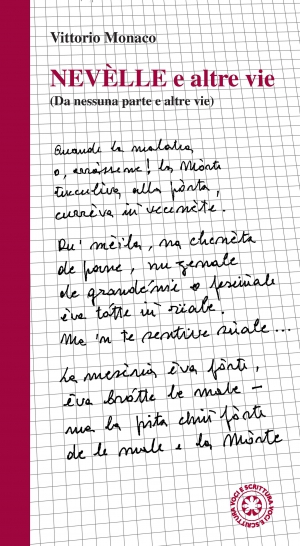 Vittorio Monaco
NEVÈLLE e altre vie
(Da nessuna parte e altre vie)
Quande la malatia,
o, arràsseme! la Mòrte
tuculìva alla pòrta,
currèva iu vecenète.
Du' mèila, na chenèta
de pane, nu
de o
èva tótte iu riale.
Ma 'n te sentive suale...
La meseria èva fòrte,
èva brótte le male -
ma la pita chiù fòrte
de le male e la Mòrte
VOCI E SCRITTURA VOCI E SCRITTURA